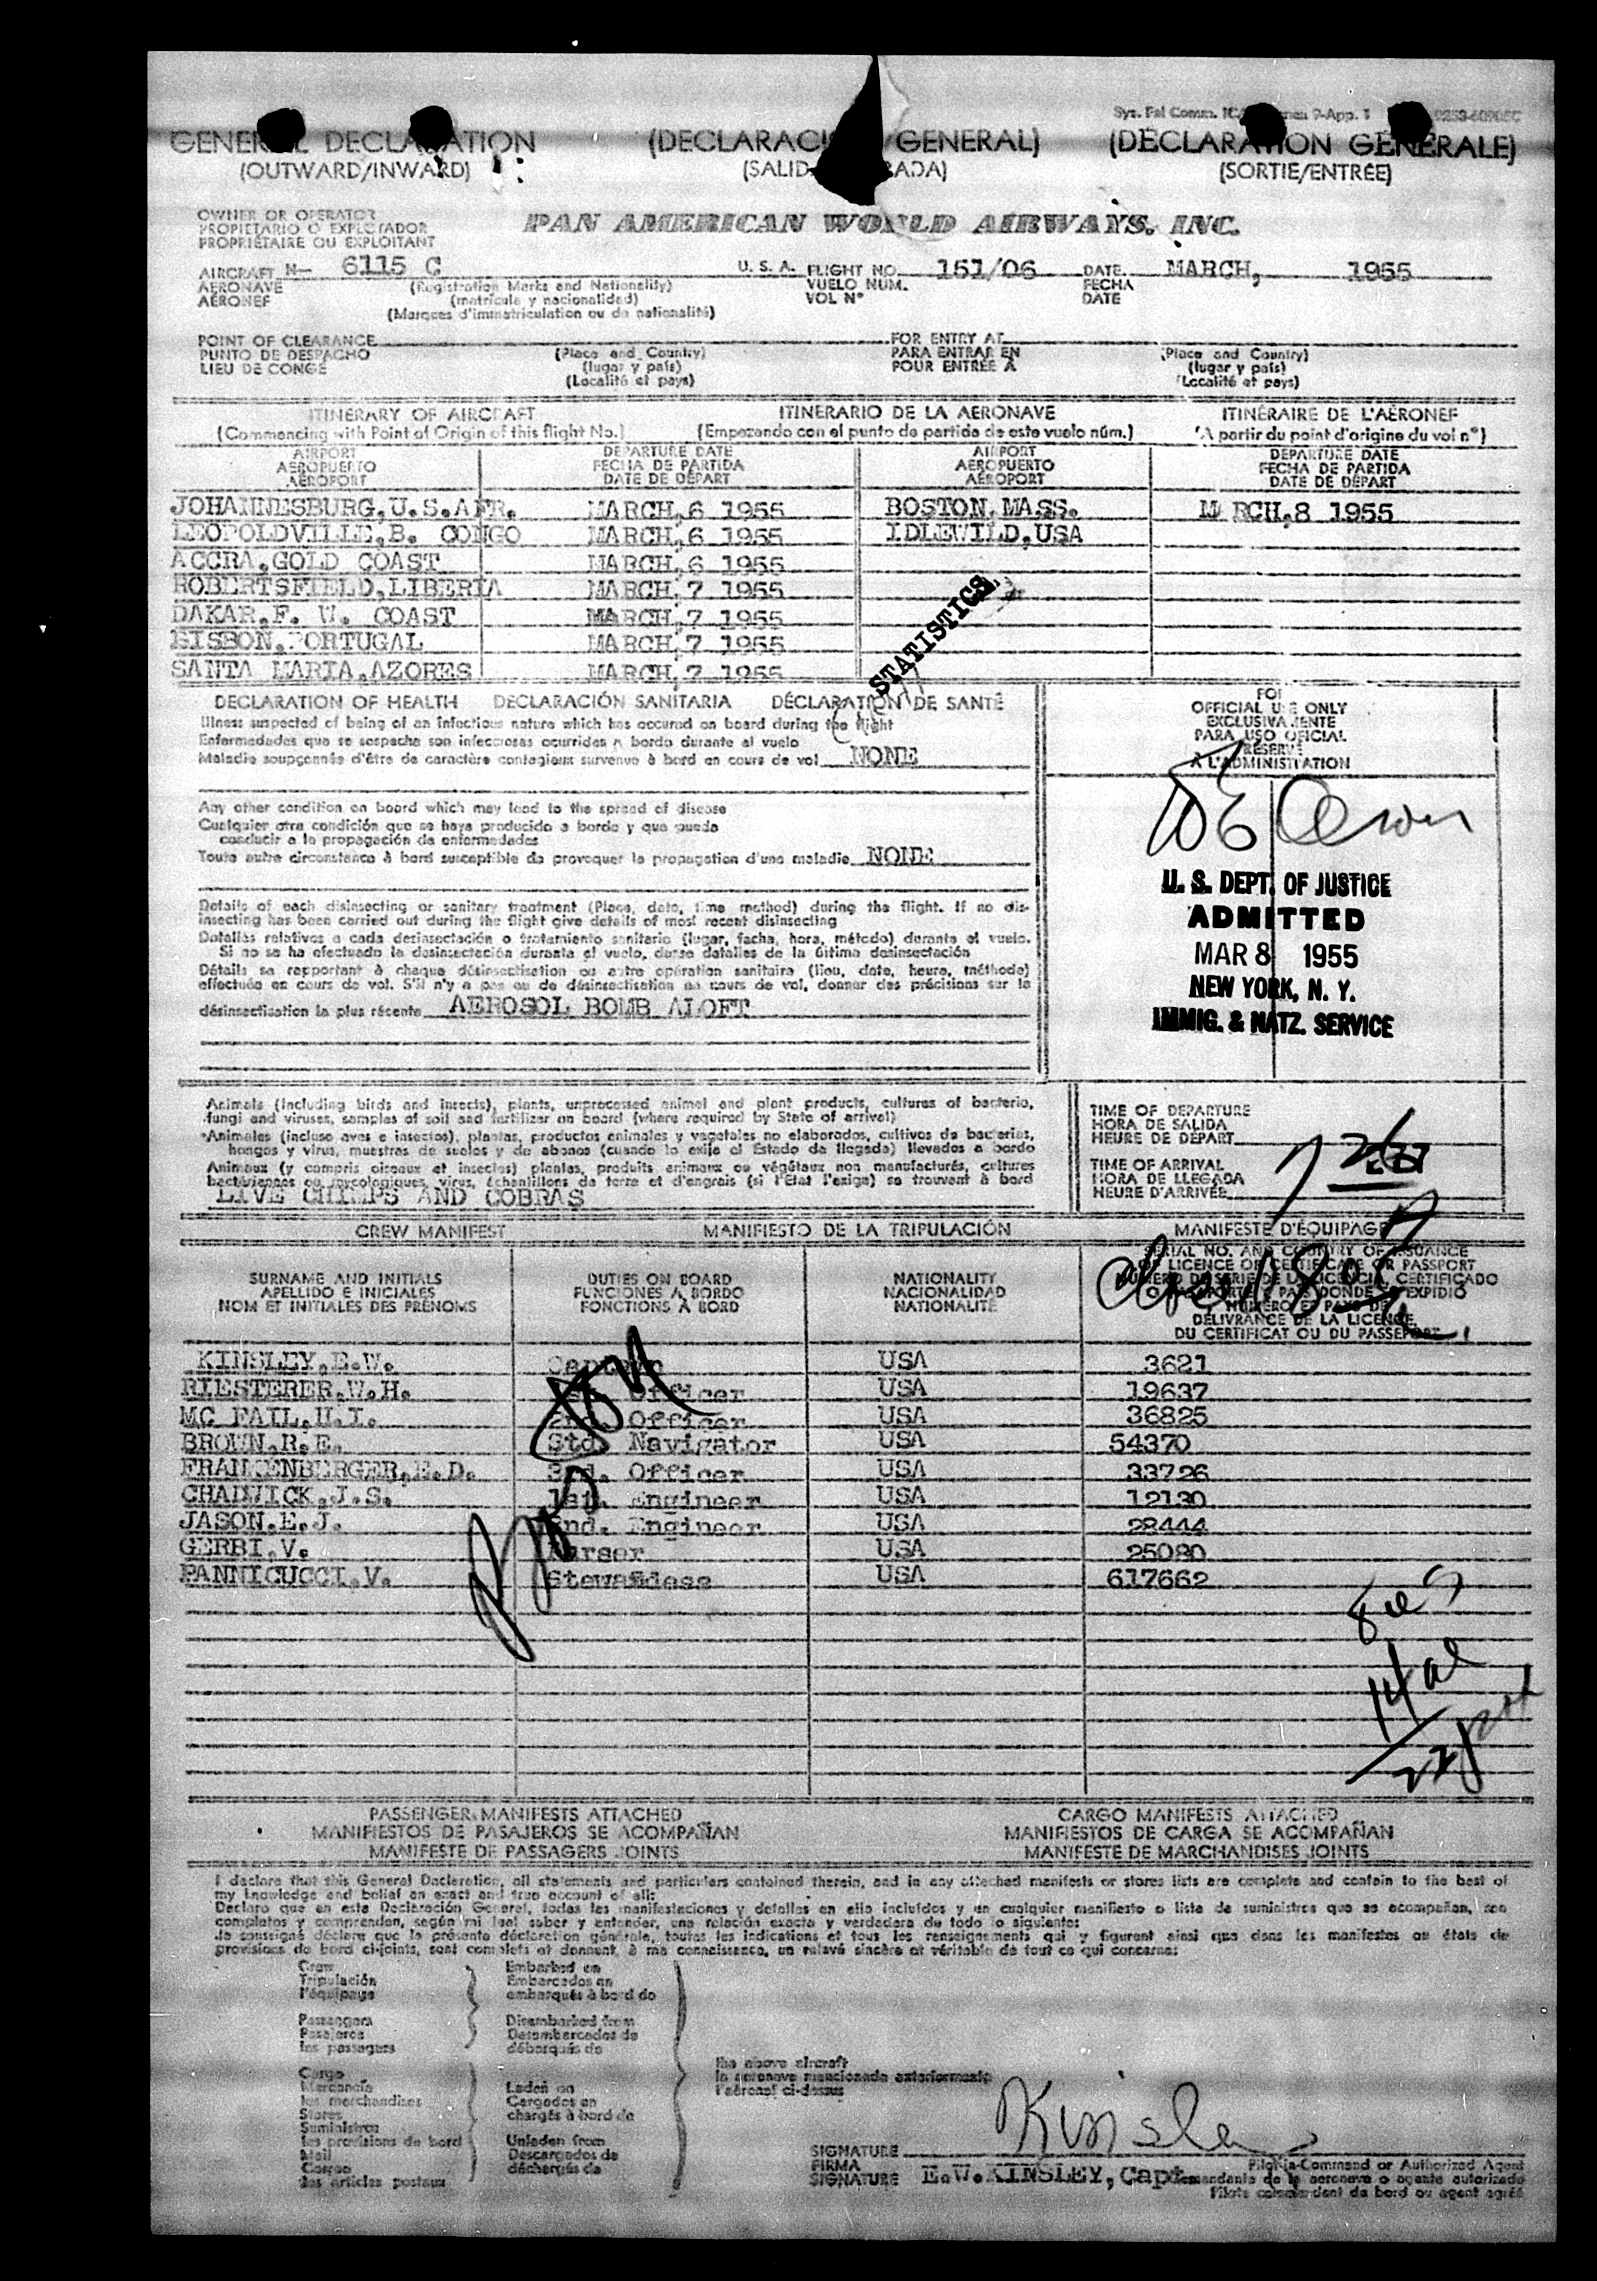 GENERAL DECLARATION (DECLARACIÓN GENERAL) (DÉCLARATION GÉNÉRALE)
(OUTWARD/INWARD) (SALIDA/ENTRADA) (SORTIE/ENTRÉE)
OWNER OR OPERATOR
PROPIETARIO O EXPLOTADOR
PROPRIÉTAIRE OU EXPLOITANT
PAN AMERICAN WORLD AIRWAYS, INC.
AIRCRAFT N- 6115 C U. S. A. FLIGHT NO. 151/06 DATE MARCH, 1955
AERONAVE (Registration Marks and Nationality) VUELO NUM. FECHA
AÉRONEF (matrícula y nacionalidad) VOL Nº DATE
(Marques d'immatriculation ou de nationalité)
POINT OF CLEARANCE FOR ENTRY AT
PUNTO DE DESPACHO (Place and Country) PARA ENTRAR EN (Place and Country)
LIEU DE CONGÉ (lugar y país) POUR ENTRÉE À (lugar y país)
(Localité et pays) (Localité et pays)
ITINERARY OF AIRCRAFT ITINERARIO DE LA AERONAVE ITINÉRAIRE DE L'AÉRONEF
(Commencing with Point of Origin of this flight No.) (Empezando con el punto de partida de este vuelo núm.) (A partir du point d'origine du vol nº)
AIRPORT DEPARTURE DATE AIRPORT DEPARTURE DATE
AEROPUERTO FECHA DE PARTIDA AEROPUERTO FECHA DE PARTIDA
AÉROPORT DATE DE DÉPART AÉROPORT DATE DE DÉPART
JOHANNESBURG,U.S.AFR. MARCH,6 1955 BOSTON,MASS. M RCH,8 1955
LEOPOLDVILLE,B. CONGO MARCH,6 1955 IDLEWILD,USA
ACCRA,GOLD COAST MARCH,6 1955
ROBERTSFIELD,LIBERIA MARCH,7 1955
DAKAR,F. W. COAST MARCH,7 1955
LISBON,PORTUGAL MARCH,7 1955
SANTA MARIA,AZORES MARCH,7 1955
STATISTICS
DECLARATION OF HEALTH DECLARACIÓN SANITARIA DÉCLARATION DE SANTÉ
Illness suspected of being of an infectious nature which has occured on board during the flight
Enfermedades que se sospecha son infecciosas ocurridas a bordo durante el vuelo
Maladie soupçonnée d'être de caractère contagieux survenue à bord en cours de vol NONE
Any other condition on board which may lead to the spread of disease
Cualquier otra condición que se haya producido a bordo y que pueda
conducir a la propagación de enfermedades
Toute autre circonstance à bord susceptible de provoquer la propagation d'une maladie NONE
Details of each disinsecting or sanitary treatment (Place, date, time method) during the flight. If no dis-
insecting has been carried out during the flight give details of most recent disinsecting
Detalles relativos a cada desinsectación o tratamiento sanitario (lugar, fecha, hora, método) durante el vuelo.
Si no se ha efectuado la desinsectación durante el vuelo, darse detalles de la última desinsectación
Détails se rapportant à chaque désinsectisation ou autre opération sanitaire (lieu, date, heure, méthode)
effectuée en cours de vol. S'il n'y a pas eu de désinsectisation au cours de vol, donner des précisions sur la
désinsectisation la plus récente AEROSOL BOMB ALOFT
FOR
OFFICIAL USE ONLY
EXCLUSIVAMENTE
PARA USO OFICIAL
RÉSERVÉ
À L'ADMINISTRATION
U. S. DEPT. OF JUSTICE
ADMITTED
MAR 8 1955
NEW YORK, N. Y.
IMMIG. & NATZ. SERVICE
Animals (including birds and insects), plants, unprocessed animal and plant products, cultures of bacteria,
fungi and viruses, samples of soil and fertilizer on board (where required by State of arrival)
Animales (incluso aves e insectos), plantas, productos animales y vegetales no elaborados, cultivos de bacterias,
hongos y virus, muestras de suelos y de abonos (cuando lo exija el Estado de llegada) llevados a bordo
Animaux (y compris oiseaux et insectes) plantes, produits animaux ou végétaux non manufacturés, cultures
bactériennes ou mycologiques, virus, échantillons de terre et d'engrais (si l'Etat l'exige) se trouvant à bord
LIVE CHIMPS AND COBRAS
TIME OF DEPARTURE
HORA DE SALIDA
HEURE DE DÉPART
TIME OF ARRIVAL
HORA DE LLEGADA
HEURE D'ARRIVÉE
CREW MANIFEST MANIFIESTO DE LA TRIPULACIÓN MANIFESTE D'ÉQUIPAGE
SURNAME AND INITIALS DUTIES ON BOARD NATIONALITY
APELLIDO E INICIALES FUNCIONES A BORDO NACIONALIDAD
NOM ET INITIALES DES PRÉNOMS FONCTIONS À BORD NATIONALITÉ
SERIAL NO. AND COUNTRY OF ISSUANCE
OF LICENCE OR CERTIFICATE OR PASSPORT
NÚMERO DE SERIE DE LA LICENCIA, CERTIFICADO
O PASAPORTE Y PAÍS DONDE SE EXPIDIÓ
NUMÉRO ET PAYS DE
DÉLIVRANCE DE LA LICENCE,
DU CERTIFICAT OU DU PASSEPORT
KINSLEY,E.W. Captain USA 3621
RIESTERER,W.H. 1st. Officer USA 19637
MC FAIL,H.I. 2nd. Officer USA 36825
BROWN,R.E. Std. Navigator USA 54370
FRANKENBERGER,E.D. 3rd. Officer USA 33726
CHADWICK,J.S. 1st. Engineer USA 12130
JASON,E.J. 2nd. Engineer USA 28444
GERBI,V. Purser USA 25080
PANNICUCCI,V. Stewardess USA 617662
PASSENGER MANIFESTS ATTACHED CARGO MANIFESTS ATTACHED
MANIFIESTOS DE PASAJEROS SE ACOMPAÑAN MANIFIESTOS DE CARGA SE ACOMPAÑAN
MANIFESTE DE PASSAGERS JOINTS MANIFESTE DE MARCHANDISES JOINTS
I declare that this General Declaration, all statements and particulars contained therein, and in any attached manifests or stores lists are complete and contain to the best of
my knowledge and belief an exact and true account of all:
Declaro que en esta Declaración General, todas las manifestaciones y detalles en ella incluidos y en cualquier manifiesto o lista de suministros que se acompañan, son
completos y comprenden, según mi leal saber y entender, una relación exacta y verdadera de todo lo siguiente:
Je soussigné déclare que la présente déclaration générale, toutes les indications et tous les renseignements qui y figurent ainsi que dans les manifestes ou états de
provisions de bord ci-joints, sont complets et donnent, à ma connaissance, un relevé sincère et véritable de tout ce qui concerne:
Crew Embarked on
Tripulación Embarcados en
l'équipage embarqués à bord de
Passengers Disembarked from
Pasajeros Desembarcados de
les passagers débarqués de
the above aircraft
la aeronave mencionada anteriormente
l'aéronef ci-dessus
Cargo
Mercancía Laden on
les marchandises Cargados en
Stores chargés à bord de
Suministros
les provisions de bord Unladen from
Mail Descargados de
Correo déchargés de
des articles postaux
Kinsley
SIGNATURE
FIRMA
SIGNATURE E.W.KINSLEY,Capt.
Pilot-in-Command or Authorized Agent
Comandante de la aeronave o agente autorizado
Pilote commandant de bord ou agent agréé